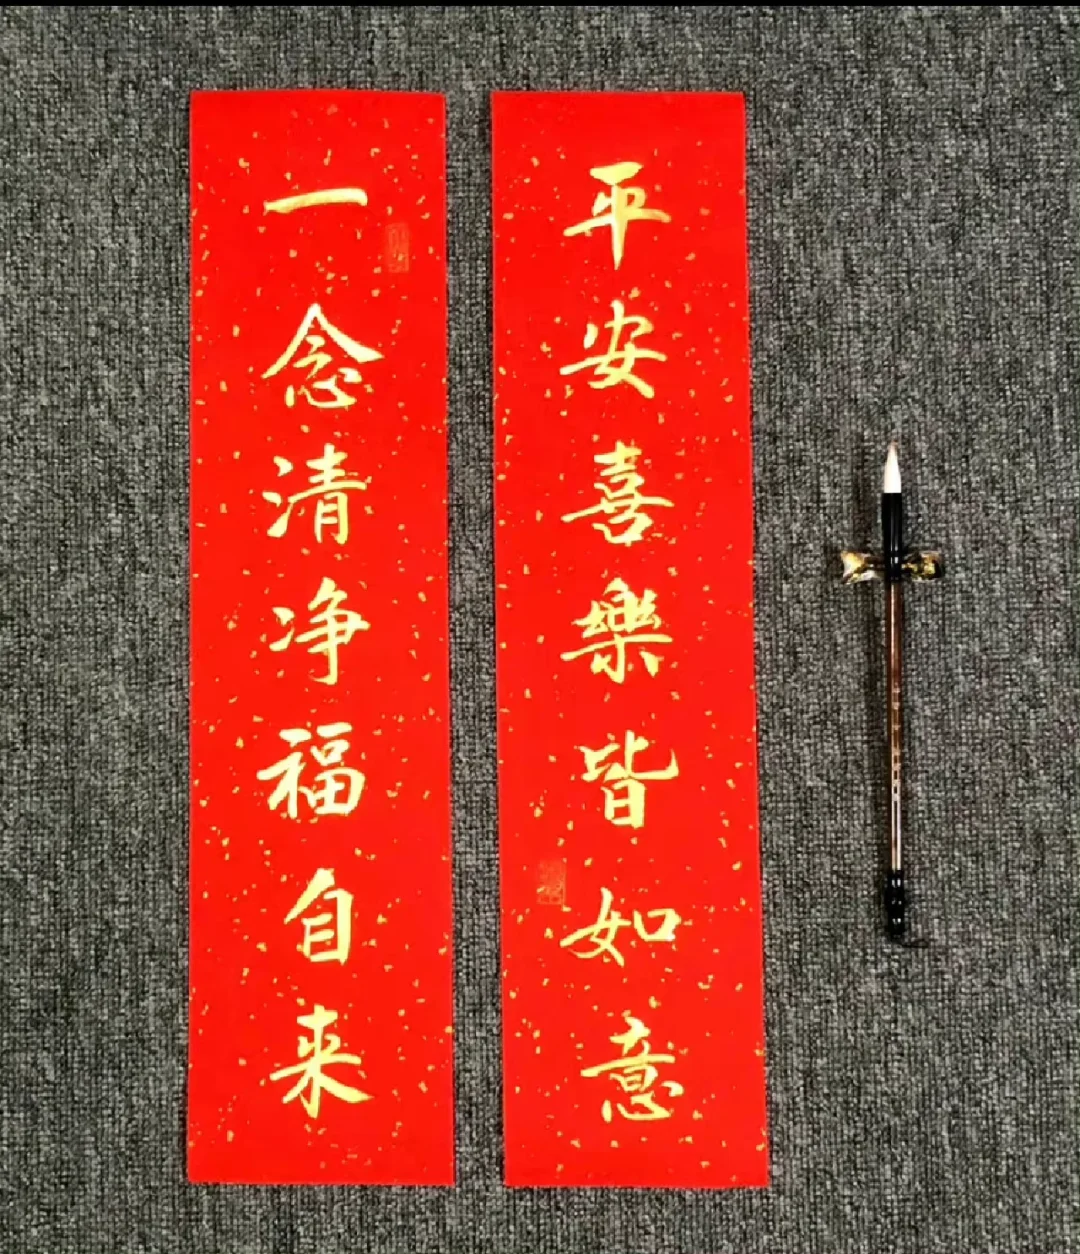 平安喜樂皆如意
一念清净福自来